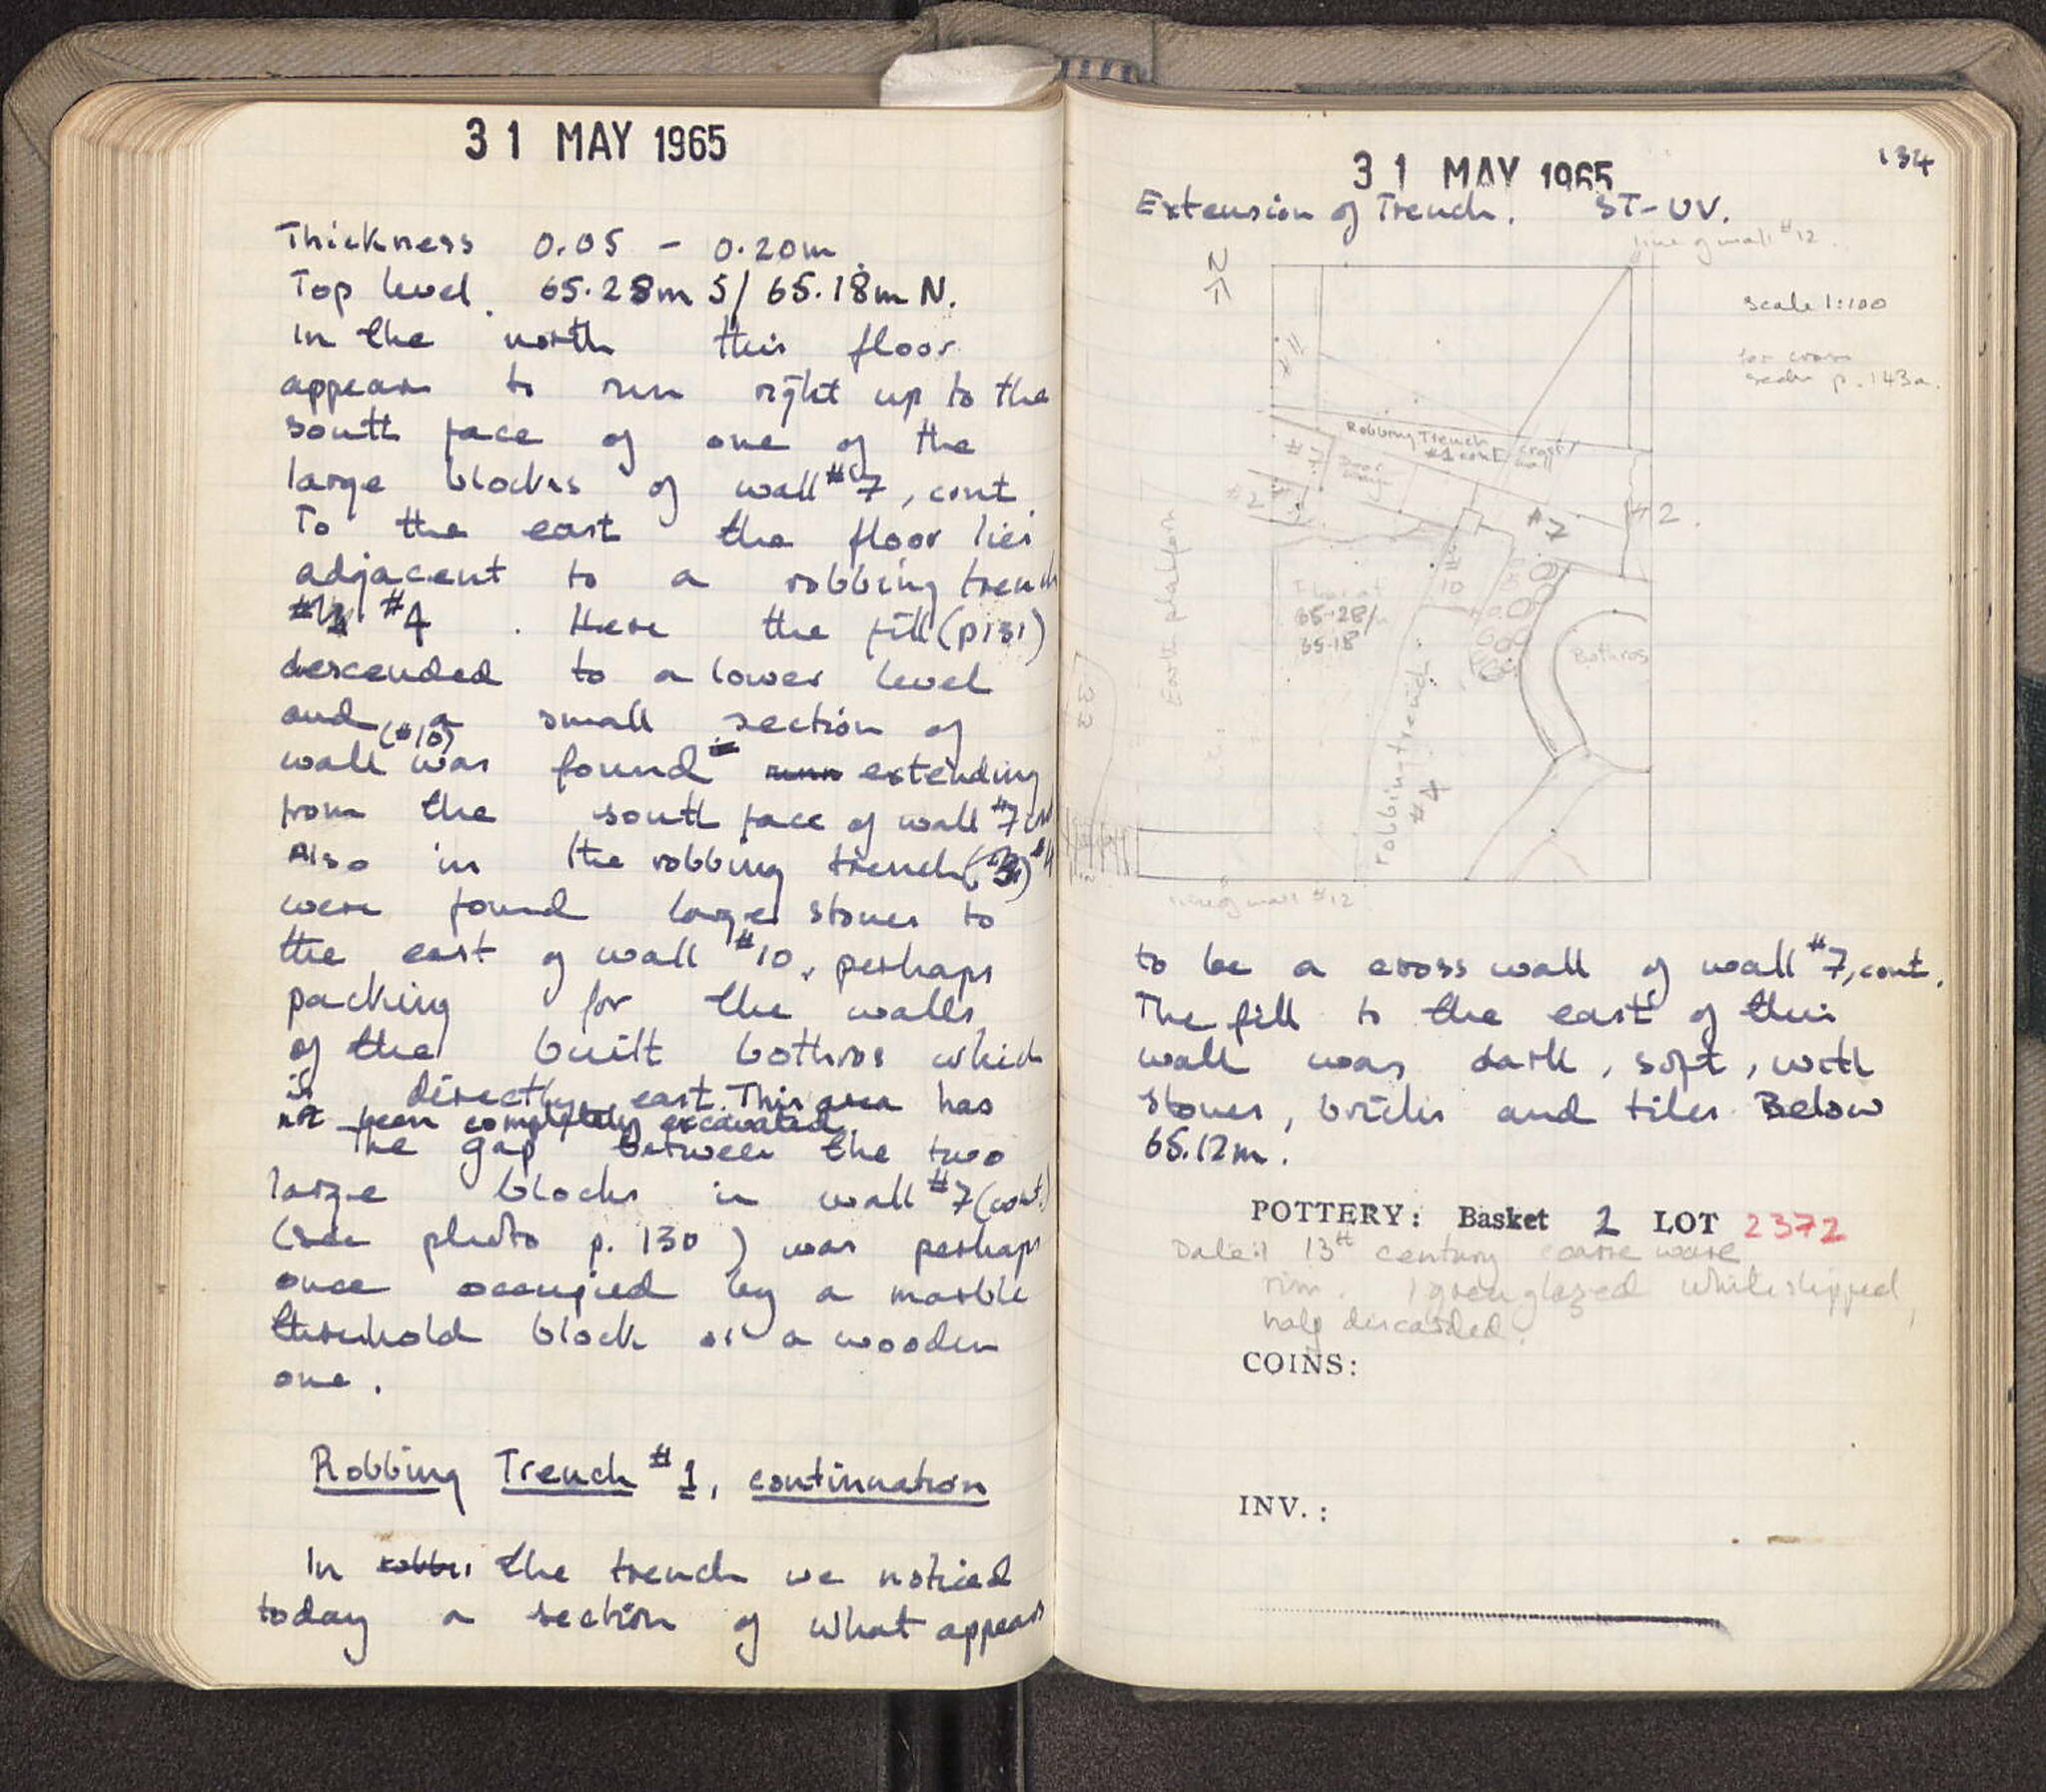 31 MAY 1965
Thickness 0.05 - 0.20m
Top level. 65.28m S/ 65.18m N.
In the north this floor
appears to run right up to the
south face of one of the
large blocks of wall #7, cont.
To the east the floor lies
adjacent to a robbing trench
#4. Here the fill (p131)
descended to a lower level
and a small section of
wall (#10) was found extending
from the south face of wall #7
Also in the robbing trench #4
were found large stones to
the east of wall #10, perhaps
packing for the walls
of the built bothros which
is directly east. This area has
not been completely excavated.
The gap between the two
large blocks in wall #7 (cont.)
(see photo p. 130) was perhaps
once occupied by a marble
threshold block or a wooden
one.
Robbing Trench #1, continuation
In the trench we noticed
today a section of what appears
134
31 MAY 1965
Extension of Trench. ST-UV.
line of wall #12.
N
scale 1:100
for cross
section p. 143a.
#11
Robbing Trench
#1 cont
cross
wall
#7
Door
way
#2
#7
#2.
Earth platform
Floor at
65.28/
65.18
#10
Bothros
robbing trench
#4
line of wall #12
to be a cross wall of wall #7, cont.
The fill to the east of this
wall was dark, soft, with
stones, bricks and tiles. Below
65.12m.
POTTERY: Basket 1 LOT 2372
Date: 13th century coarse ware
rim. 1 green glazed white slipped,
half discarded.
COINS:
INV.: